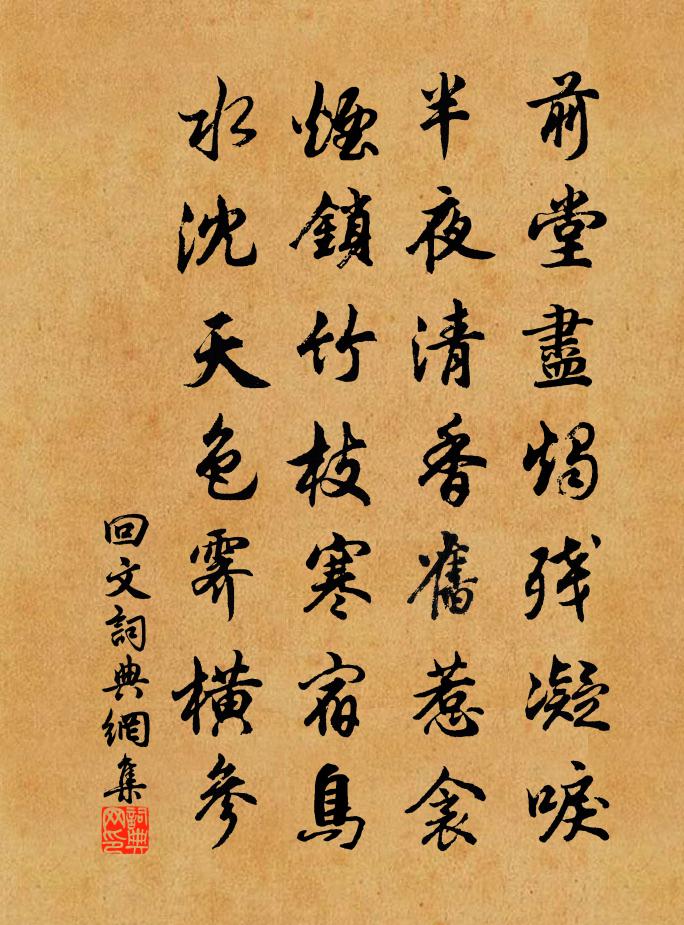 前堂盡燭残凝唳
半夜清香舊惹衾
煙鎖竹枝寒宿鳥
水沈天色霽橫參
回文詞典網集
詞典網印